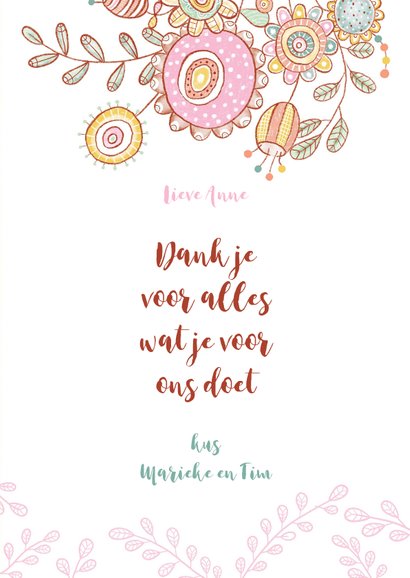 Lieve Anne
Dank je
voor alles
wat je voor
ons doet
kus
Marieke en Tim